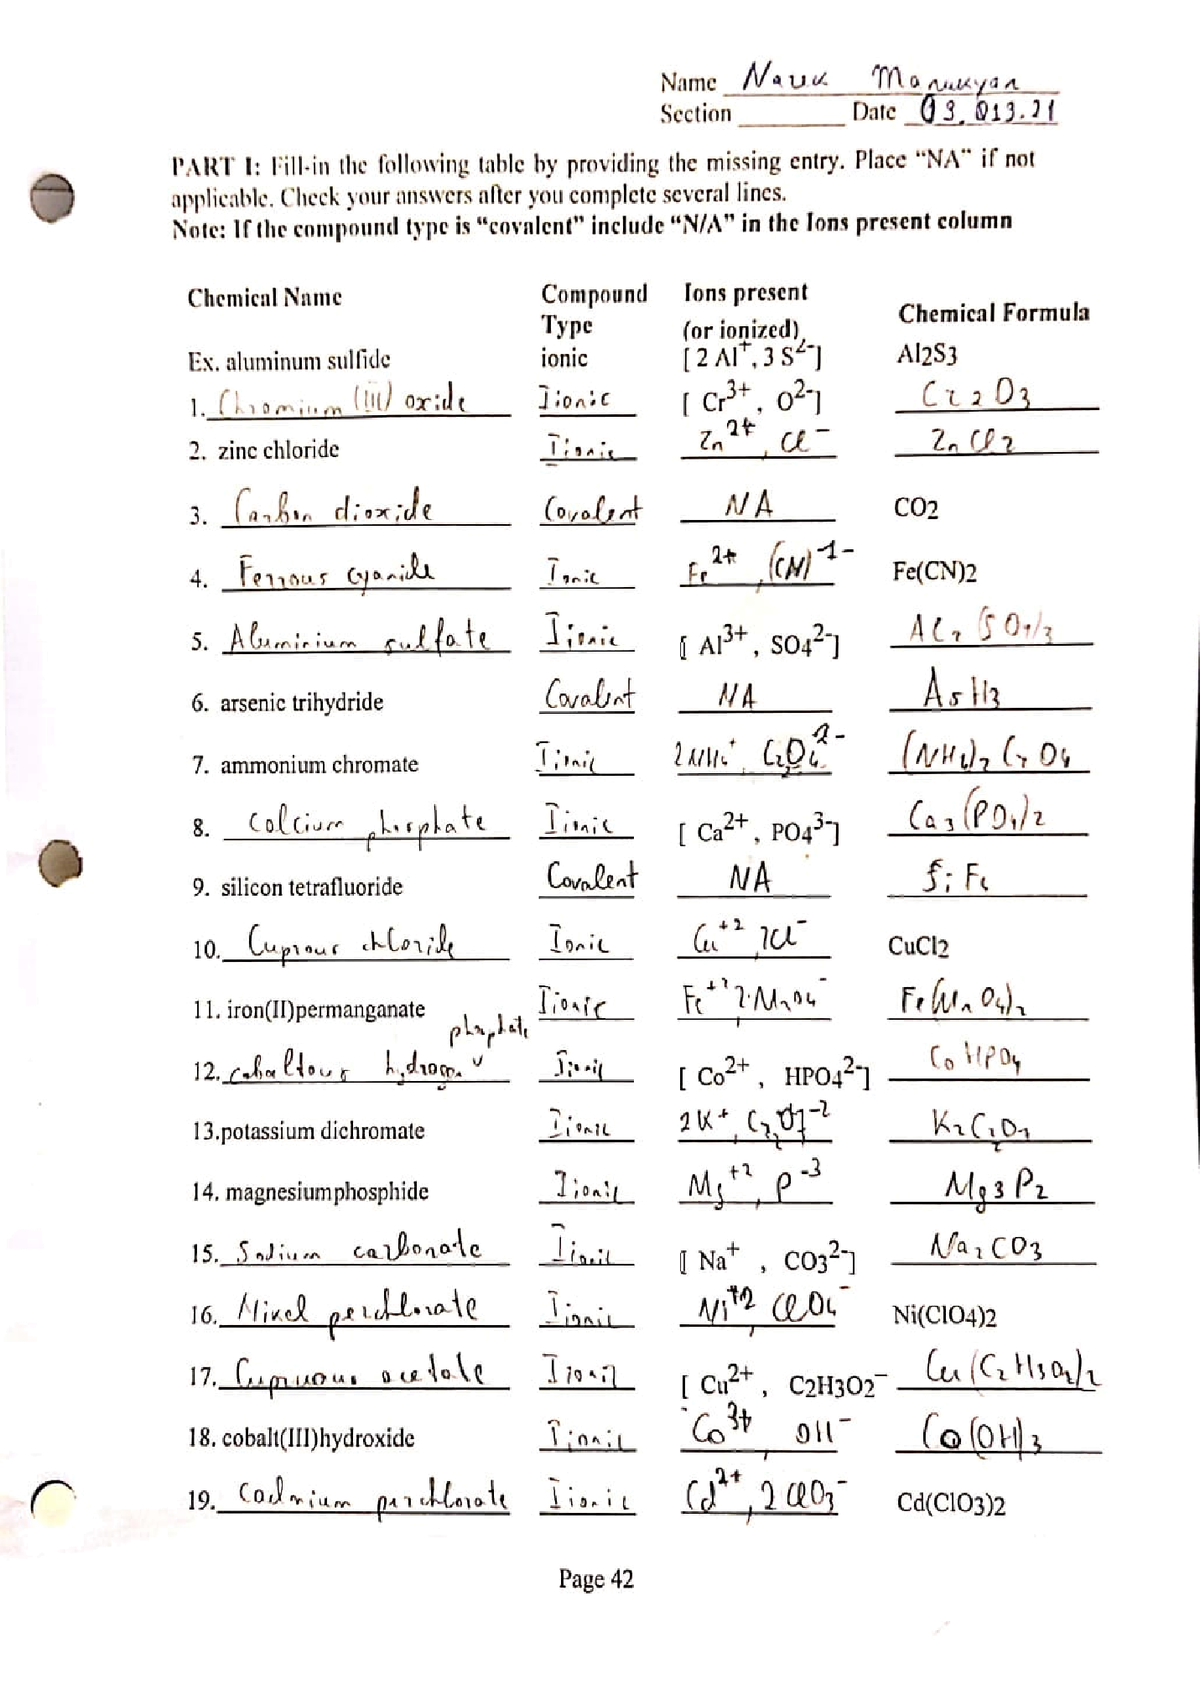 Name Narek Manukyan
Section ________ Date 03.013.21
PART I: Fill-in the following table by providing the missing entry. Place “NA” if not
applicable. Check your answers after you complete several lines.
Note: If the compound type is “covalent” include “N/A” in the Ions present column
Chemical Name Compound Type Ions present (or ionized) Chemical Formula
Ex. aluminum sulfide ionic [ 2 Al+, 3 S2-] Al2S3
1. Chromium (III) oxide Iionic [ Cr3+ , O2-] Cr2O3
2. zinc chloride Iionic Zn2+, Cl- ZnCl2
3. Carbon dioxide Covalent NA CO2
4. Ferrous cyanide Ionic Fe2+, (CN)1- Fe(CN)2
5. Aluminium sulfate Iionic [ Al3+ , SO42-] Al2(SO4)3
6. arsenic trihydride Covalent NA AsH3
7. ammonium chromate Iionic 2NH4+, CrO42- (NH4)2CrO4
8. Calcium phosphate Iionic [ Ca2+ , PO43-] Ca3(PO4)2
9. silicon tetrafluoride Covalent NA
10. Cuprous chloride Ionic Cu+2, 2Cl- CuCl2
11. iron(II)permanganate Iionic Fe+2, 2·MnO4- Fe(MnO4)2
12. cobaltous hydrogen phosphate Iionic [ Co2+ , HPO42-] CoHPO4
13.potassium dichromate Iionic 2K+, Cr2O7-2 K2Cr2O7
14. magnesiumphosphide Iionic Mg+2, P-3 Mg3P2
15. Sodium carbonate Iionic [ Na+ , CO32-] Na2CO3
16. Nikel perchlorate Iionic Ni+2, ClO4- Ni(ClO4)2
17. Cupruous acetate Iionic [ Cu2+ , C2H3O2- Cu(C2H3O2)2
18. cobalt(III)hydroxide Iionic Co3+, OH- Co(OH)3
19. Cadmium perchlorate Iionic Cd2+, 2ClO3- Cd(ClO3)2
Page 42